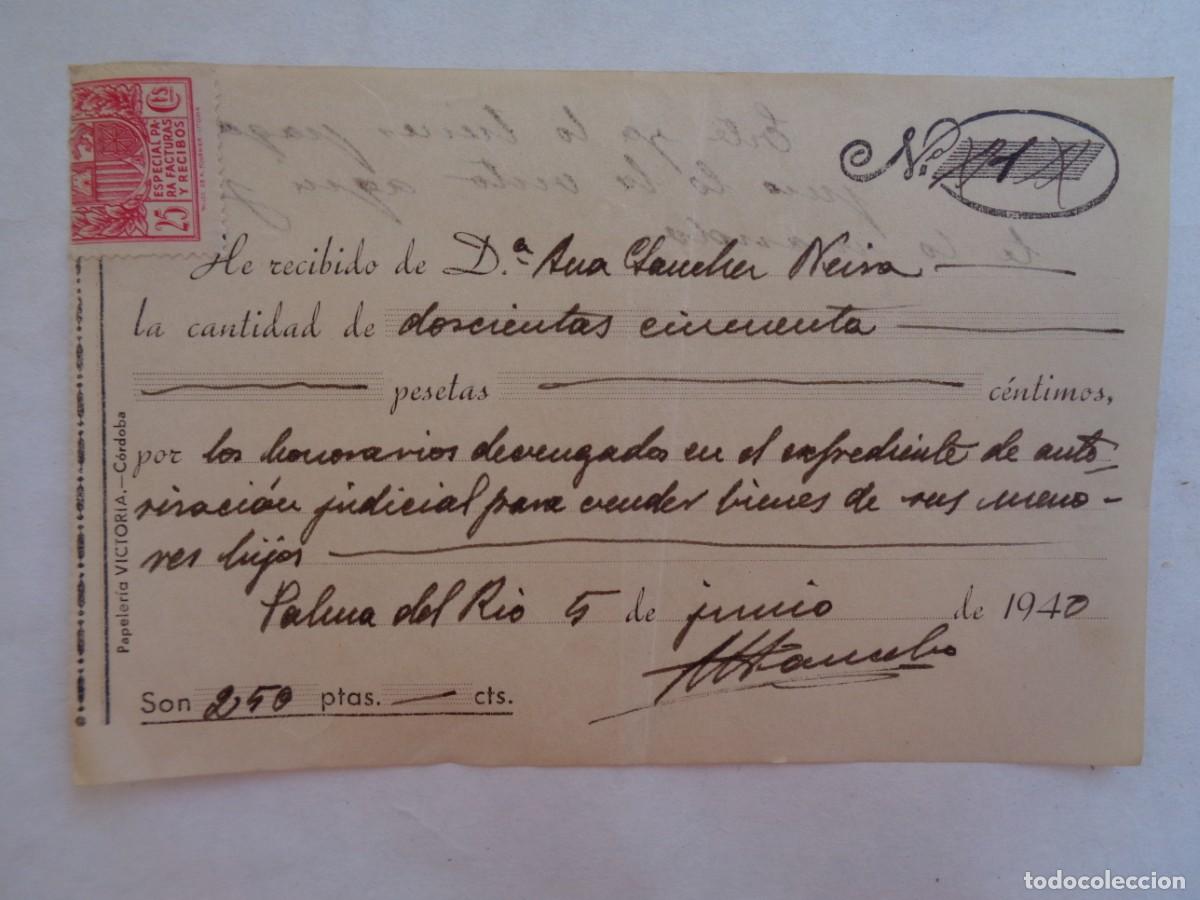 25 Cts
ESPECIAL PA-
RA FACTURAS
Y RECIBOS
Nº 1
He recibido de D.ª Ana Sanchez Neira
la cantidad de doscientas cincuenta
pesetas céntimos,
por los honorarios devengados en el expediente de auto-
risación judicial para vender bienes de sus meno-
res hijos
Palma del Rio 5 de junio de 1940
Son 250 ptas. — cts.
Papelería VICTORIA.—Córdoba
todocoleccion